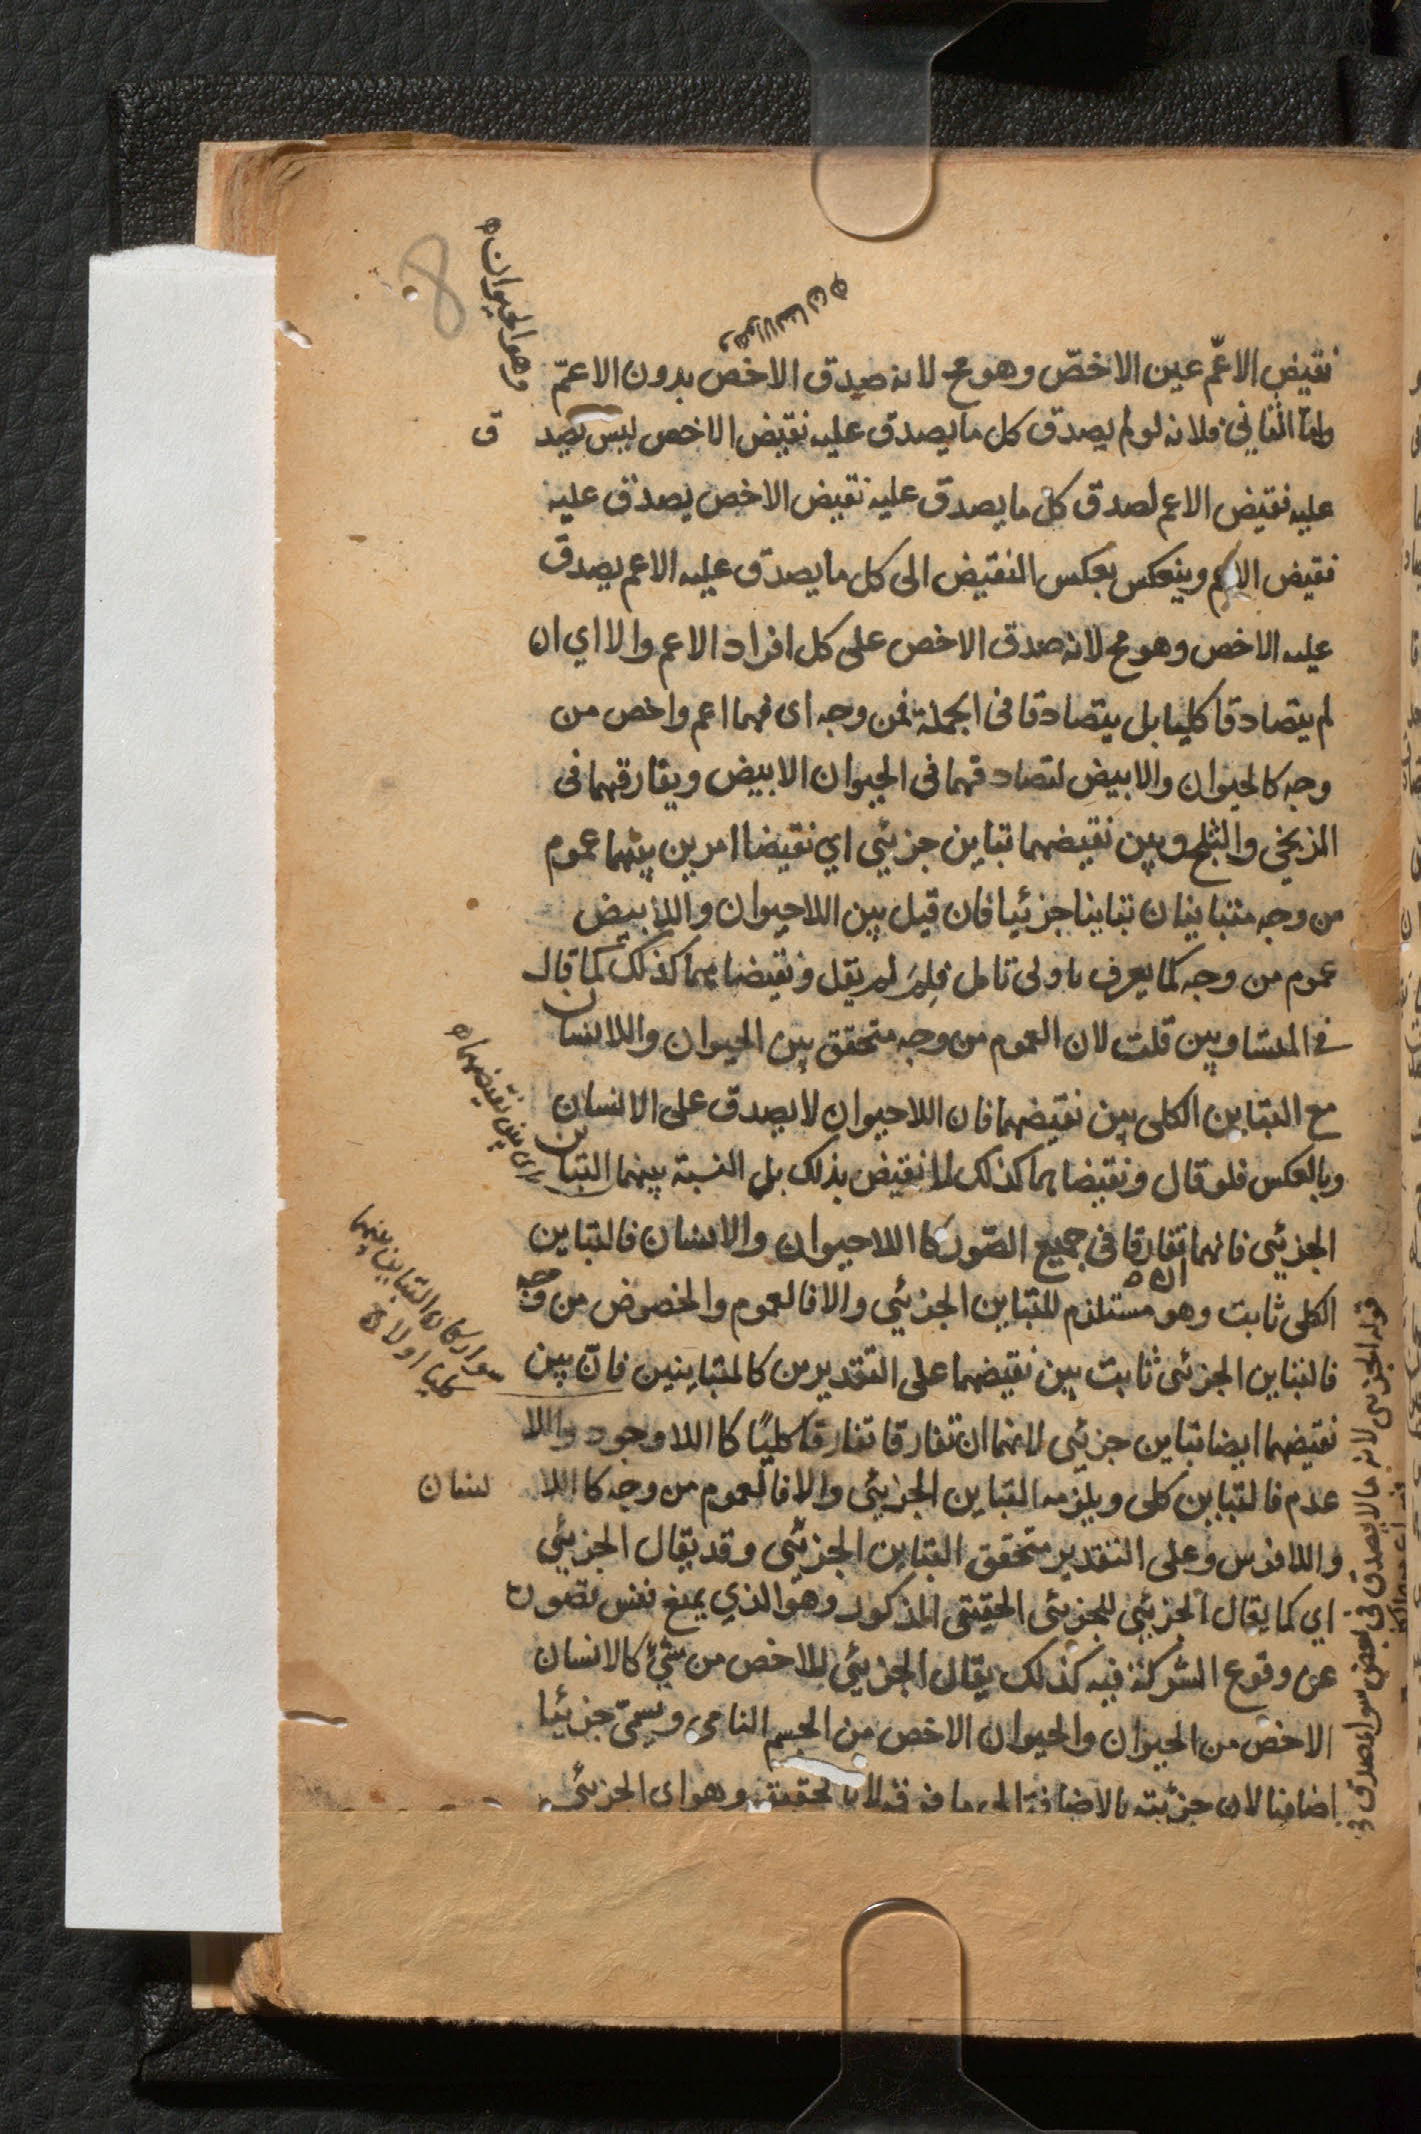 8
وهو الحيوان
وهو الانسان
نقيض الاعّم عين الاخصّ وهو مح لانه صدق الاخص بدون الاعمّ
واما الثاني فلانه لو لم يصدق كل ما يصدق عليه نقيض الاخص ليس يصد ق
عليه نقيض الاعم لصدق كل ما يصدق عليه نقيض الاخص يصدق عليه
نقيض الاعم وينعكس بعكس النقيض الى كل ما يصدق عليه الاعم يصدق
عليه الاخص وهو مح لانه صدق الاخص على كل افراد الاعم والا اي ان
لم يتصادقا كليا بل يتصادقا في الجملة فمن وجه اى فهما اعم واخص من
وجه كالحيوان والابيض لتصادقهما في الحيوان الابيض ويفارقهما في
الزنجي والثلج وبين نقيضهما تباين جزئي اي نقيضا امرين بينهما عموم
من وجه متباينان تباينا جزئيا فان قيل بين اللاحيوان واللابيض
عموم من وجه كما يعرف باولى تامل فلِمَ لم يقل ونقيضاهما كذلك كما قال
في المتساويين قلت لان العموم من وجه متحقق بين الحيوان واللاانسان
مع التباين الكلى بين نقيضهما فان اللاحيوان لا يصدق على الانسان
وبالعكس فلو قال ونقيضاهما كذلك لانقيض بذلك بل النسبة بينهما التباين
اى بين نقيضهما
الجزئي فانهما تفارقا في جميع الصّور كا اللاحيوان والانسان فالتباين
الكلى ثابت وهو مستلزم للتباين الجزئي والا فالعموم والخصوص من وجه
فالتباين الجزئى ثابت بين نقيضهما على التقديرين كالمتباينين فانّ بين
سواء كان التباين بينهما
كليا اولا
نقيضهما ايضا تباين جزئي لانهما ان تفارقا تفارقا كليًا كا اللاوجود واللا
عدم فالتباين كلى ويلزمه التباين الجزئي والا فالعموم من وجه كا اللا نسان
واللافرس وعلى التقدير متحقق التباين الجزئى وقد يقال الجزئي
اي كما يقال الجزئي للجزئى الحقيقى المذكور وهو الذي يمنع نفس تصور
عن وقوع الشركة فيه كذلك يقال الجزئي للاخص من شئ كالانسان
الاخص من الحيوان والحيوان الاخص من الجسم النامى ويسمّى جزئيا
اضافيا لان جزئيته بالاضافة الى ما فوقه لا بالحقيقة وهو اى الجزئي
قوله الجزئى لانه ما لا يصدق في بعض سواء صدق في